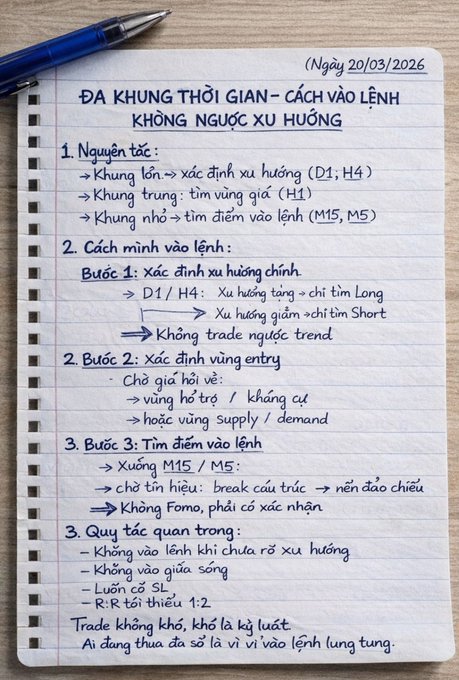 (Ngày 20/03/2026
ĐA KHUNG THỜI GIAN – CÁCH VÀO LỆNH
KHÔNG NGƯỢC XU HƯỚNG
1. Nguyên tắc:
→ Khung lớn → xác định xu hướng (D1, H4)
→ Khung trung: tìm vùng giá (H1)
→ Khung nhỏ → tìm điểm vào lệnh (M15, M5)
2. Cách mình vào lệnh:
Bước 1: Xác định xu hướng chính.
→ D1 / H4: Xu hướng tăng → chỉ tìm Long
→ Xu hướng giảm → chỉ tìm Short
⇒ Không trade ngược trend
2. Bước 2: Xác định vùng entry
- Chờ giá hồi về:
→ vùng hỗ trợ / kháng cự
→ hoặc vùng supply / demand
3. Bước 3: Tìm điểm vào lệnh
→ Xuống M15 / M5:
→ chờ tín hiệu: break cấu trúc → nến đảo chiều
⇒ Không Fomo, phải có xác nhận
3. Quy tác quan trong:
– Không vào lệnh khi chưa rõ xu hướng
– Không vào giữa sóng
– Luôn có SL
– R:R tối thiểu 1:2
Trade không khó, khó là kỷ luật.
Ai đang thua đa số là vì vì vào lệnh lung tung.